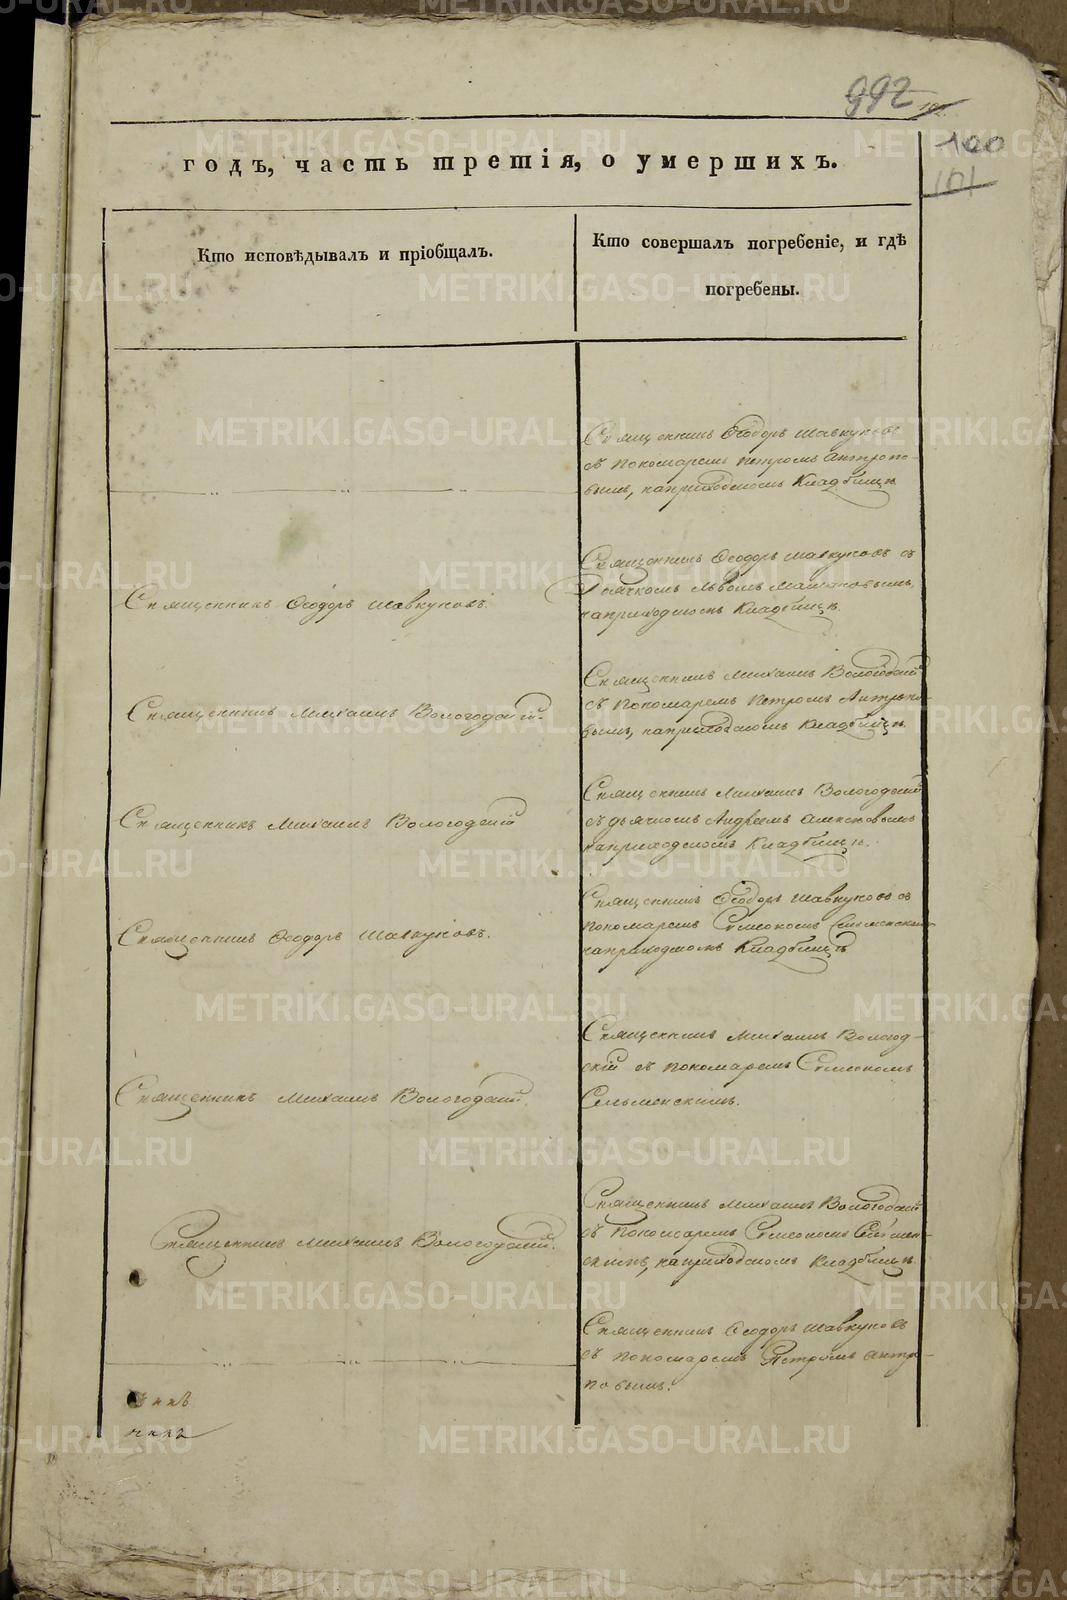 992
100
101
годъ, часть третія, о умершихъ.
Кто исповѣдывалъ и пріобщалъ.
Кто совершалъ погребеніе, и гдѣ
погребены.
Священникъ Ѳеодоръ Шавкуновъ
съ пономаремъ Петромъ Антропо-
вымъ, наприходскомъ Кладбищѣ
Священникъ Ѳеодоръ Шавкуновъ.
Священникъ Ѳеодоръ Шавкуновъ съ
Дьячкомъ Львомъ
наприходскомъ Кладбищѣ.
Священникъ Михаилъ Вологодскій.
Священникъ Михаилъ Вологодскій
съ пономаремъ Петромъ Антропо-
вымъ, наприходскомъ Кладбищѣ.
Священникъ Михаилъ Вологодскій
Священникъ Михаилъ Вологодскій
съ дьячкомъ Андреемъ
наприходскомъ Кладбищѣ.
Священникъ Ѳеодоръ Шавкуновъ.
Священникъ Ѳеодоръ Шавкуновъ съ
пономаремъ Симеономъ
наприходскомъ Кладбищѣ
Священникъ Михаилъ Вологодскій.
Священникъ Михаилъ Вологод-
скій съ пономаремъ Симеономъ
Сельменскимъ.
Священникъ Михаилъ Вологодскій.
Священникъ Михаилъ Вологодскій
съ пономаремъ Симеономъ Сельмен-
скимъ, наприходскомъ Кладбищѣ.
Священникъ Ѳеодоръ Шавкуновъ
съ пономаремъ Петромъ Антро-
повымъ.
METRIKI.GASO-URAL.RU